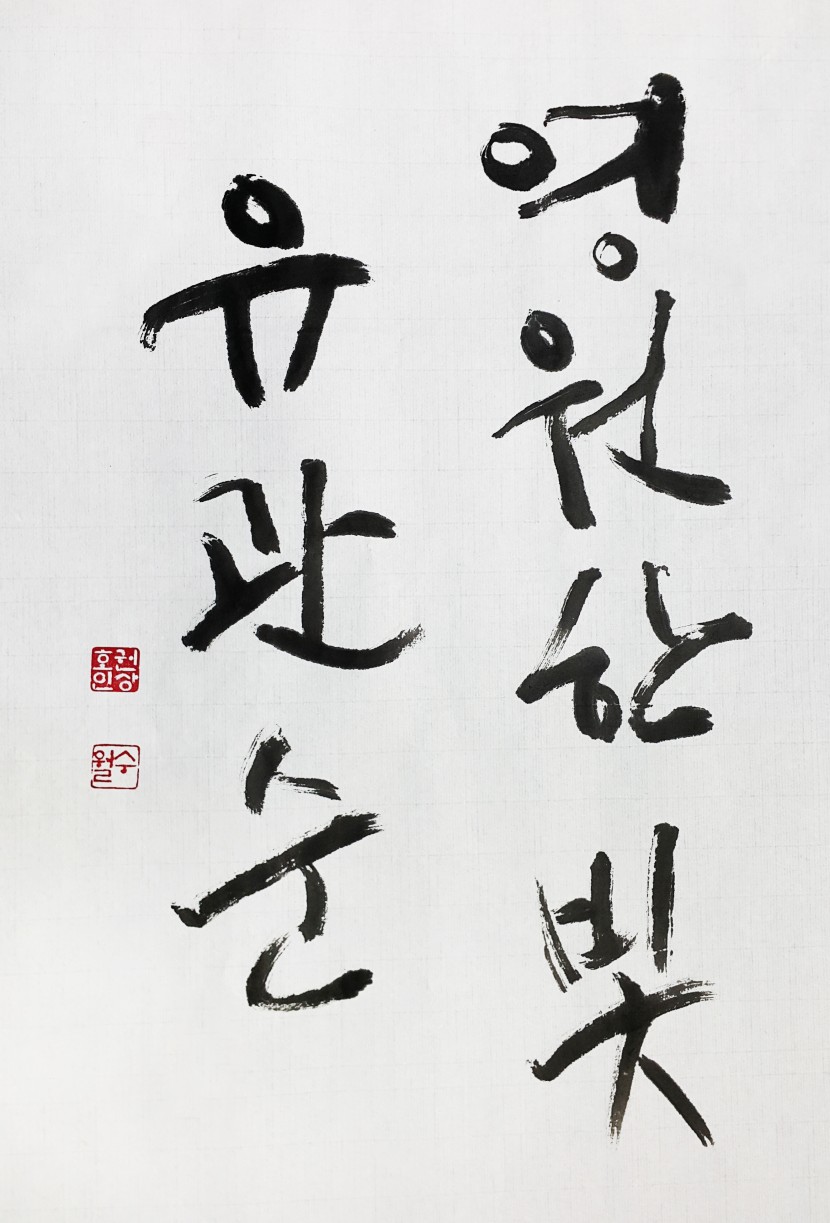 영원한 빛
유관순
권상호인
수월